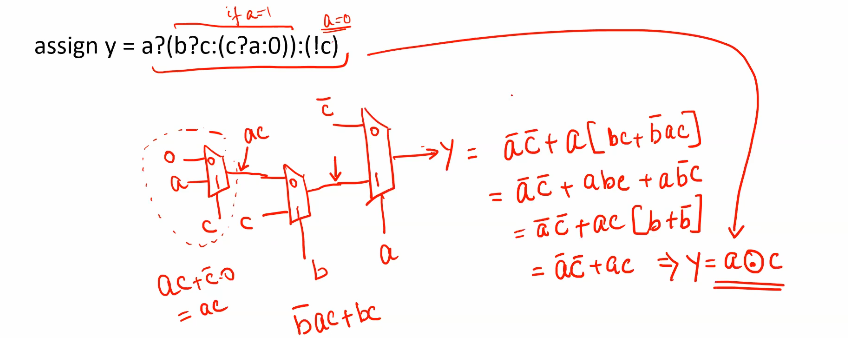 if a=1
a=0
assign y = a?(b?c:(c?a:0)):(!c)
c̅
0
ac
0
a
0
1
c
0
1
c
b
0
1
a
ac+c̅·0
= ac
b̅ac+bc
Y = a̅c̅ + a[bc+b̅ac]
= a̅c̅ + abc + ab̅c
= a̅c̅ + ac [b+b̅]
= a̅c̅ + ac ⇒ Y = a⊙c